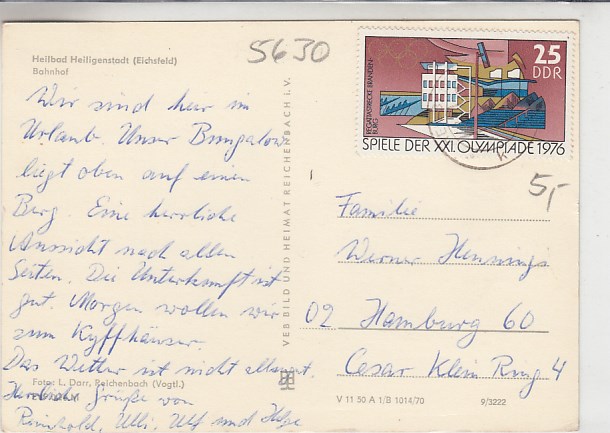 Heilbad Heiligenstadt (Eichsfeld)
Bahnhof
5630
Wir sind hier im
Urlaub. Unser Bungalow
liegt oben auf einem
Berg. Eine herrliche
Aussicht nach allen
Seiten. Die Unterkunft ist
gut. Morgen wollen wir
zum Kyffhäuser.
Das Wetter ist nicht allzu gut.
Herzliche Grüße von
Reinhold, Ulli, Ulf und
Foto: L. Darr, Reichenbach (Vogtl.)
VEB BILD UND HEIMAT REICHENBACH I. V.
25
DDR
REGATTASTRECKE BRANDEN-
BURG
SPIELE DER XXI. OLYMPIADE 1976
5,-
Familie
Werner Hennings
02 Hamburg 60
Cesar Klein Ring 4
V 11 50 A 1/B 1014/70
9/3222